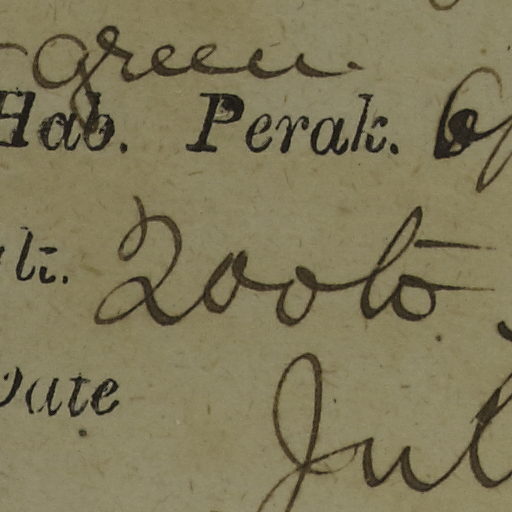 green.
Hab. Perak.
lt. 200 to
Date Jul